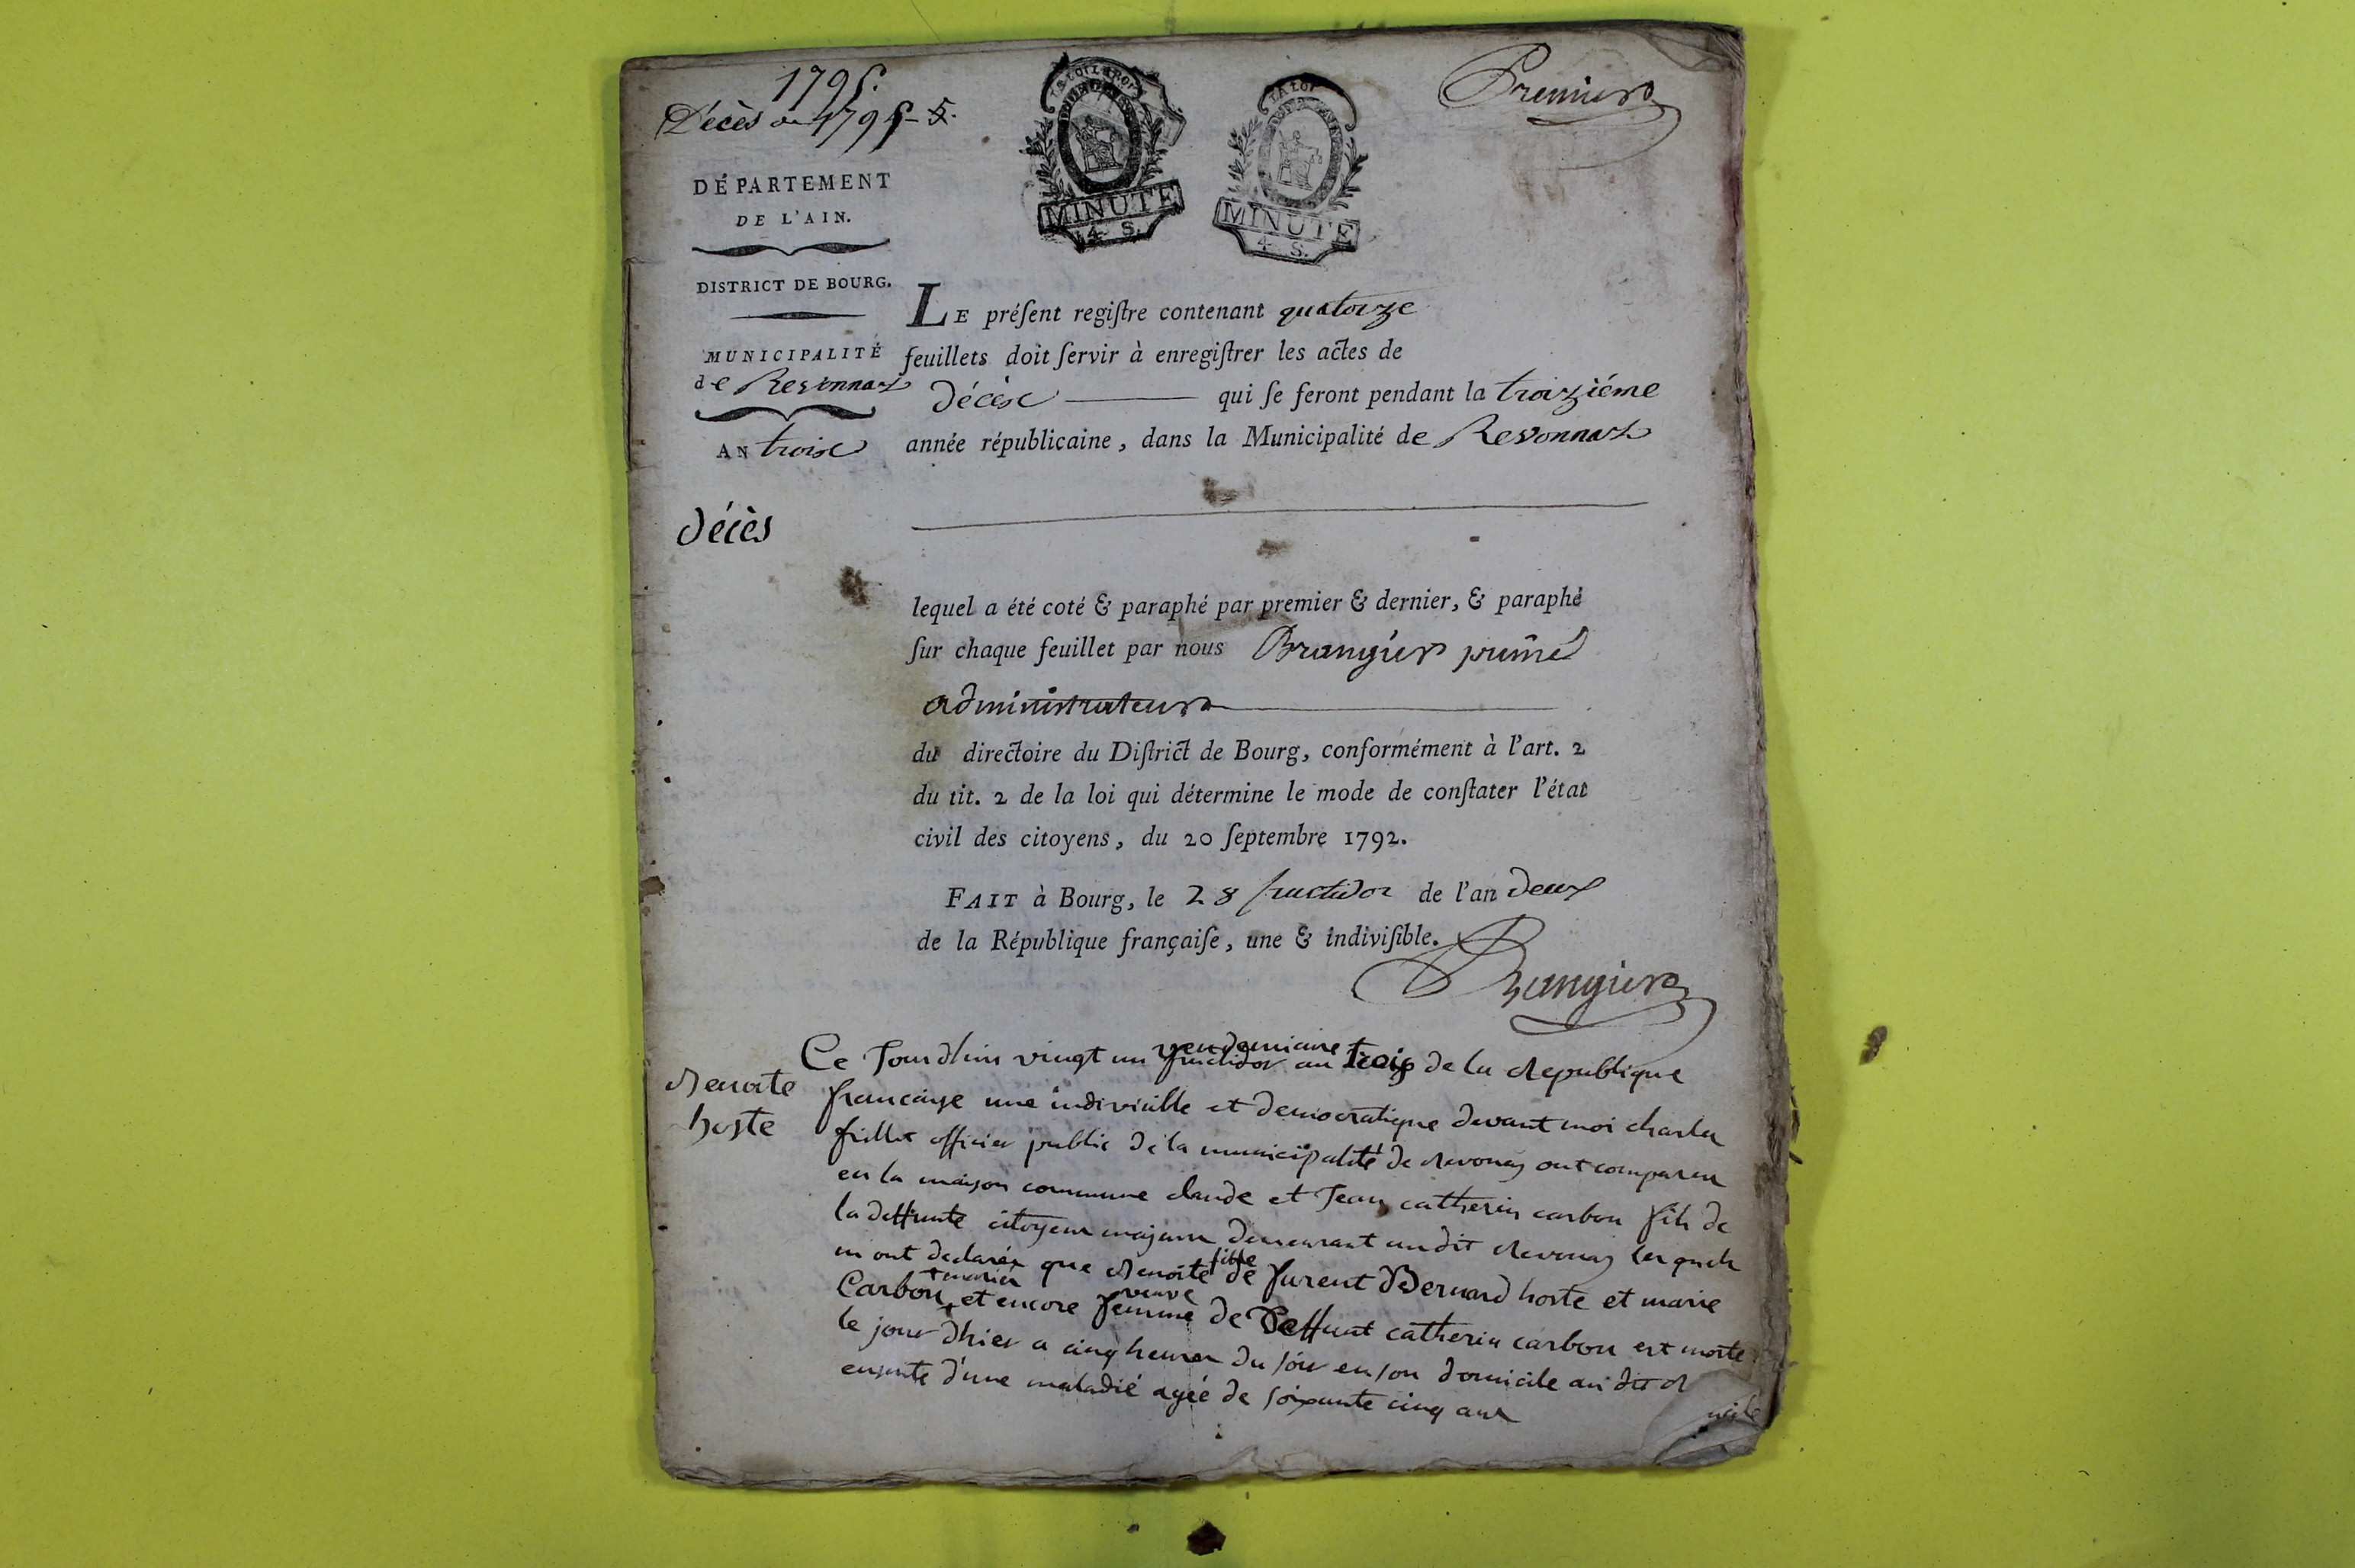 1795.
Décès an 1795 - 5.
Premier
LA LOI LE ROI
MINUTE
4 S.
LA LOI
MINUTE
4 S.
DÉPARTEMENT
DE L'AIN.
DISTRICT DE BOURG.
MUNICIPALITÉ
de Revonnaz
AN trois
décès
LE préſent regiſtre contenant quatorze
feuillets doit ſervir à enregiſtrer les actes de
décès qui ſe feront pendant la troiziéme
année républicaine, dans la Municipalité de Revonnaz
lequel a été coté & paraphé par premier & dernier, & paraphé
ſur chaque feuillet par nous Brangier
administrateur
du directoire du Diſtrict de Bourg, conformément à l'art. 2
du tit. 2 de la loi qui détermine le mode de conſtater l'état
civil des citoyens, du 20 ſeptembre 1792.
FAIT à Bourg, le 28 fructidor de l'an deux
de la République françaiſe, une & indiviſible.
Brangier
Benoite
hoste
Ce Jourdhui vingt un fructidor vendemiaire an trois de la republique
francaise une indivisible et democratique devant moi charles
frillet officier public de la municipalité de revonas ont comparu
en la maison commune claude et Jean catherin carbon fils de
la deffunte citoyens majeurs demeurant au dit revonas lesquels
m ont declarés que Benoite fille de furent Bernard hoste et marie
Carbon et encore femme veuve de Deffunt catherin carbon est morte
le jour dhier a cinq heures du soir en son domicile au dit
ensuite d'une maladié agéé de soixante cinq ans